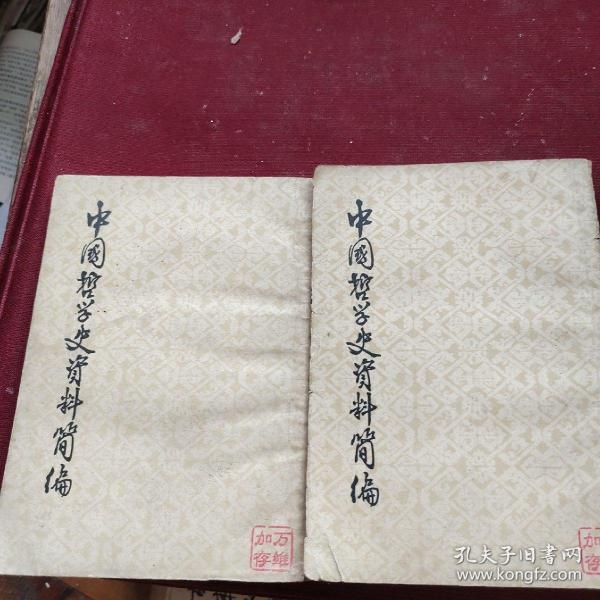 中國哲学史資料简编
中國哲学史資料简编
万維
加存
万維
加存
孔夫子旧书网
www.kongfz.com